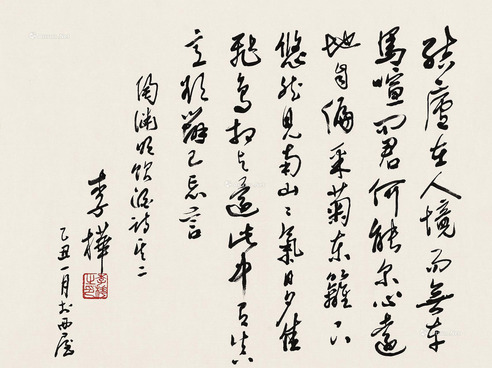 結廬在人境而無車
馬喧問君何能尔心遠
地自偏采菊东籬下
悠然見南山々氣日夕佳
飛鳥相与還此中有真
意欲辯已忘言
陶渊明飲酒詩之二
李樺
乙丑一月於西